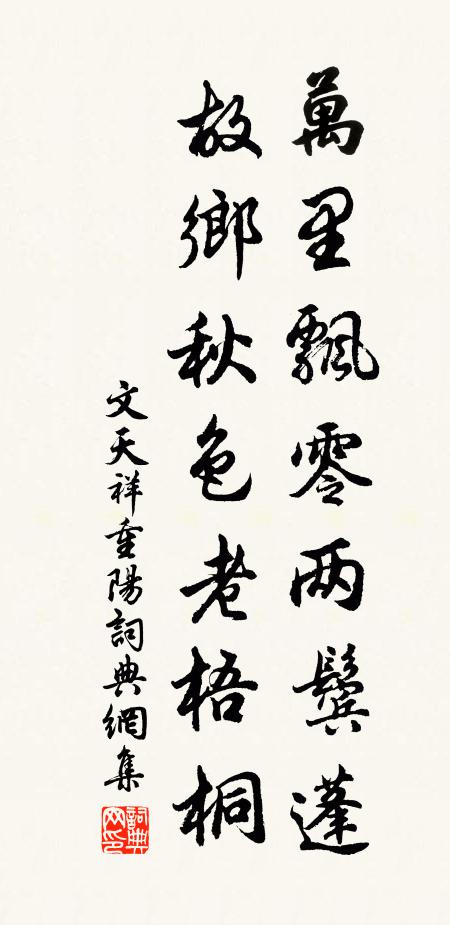 萬里飄零两鬢蓬
故鄉秋色老梧桐
文天祥重陽詞典網集
詞典网印